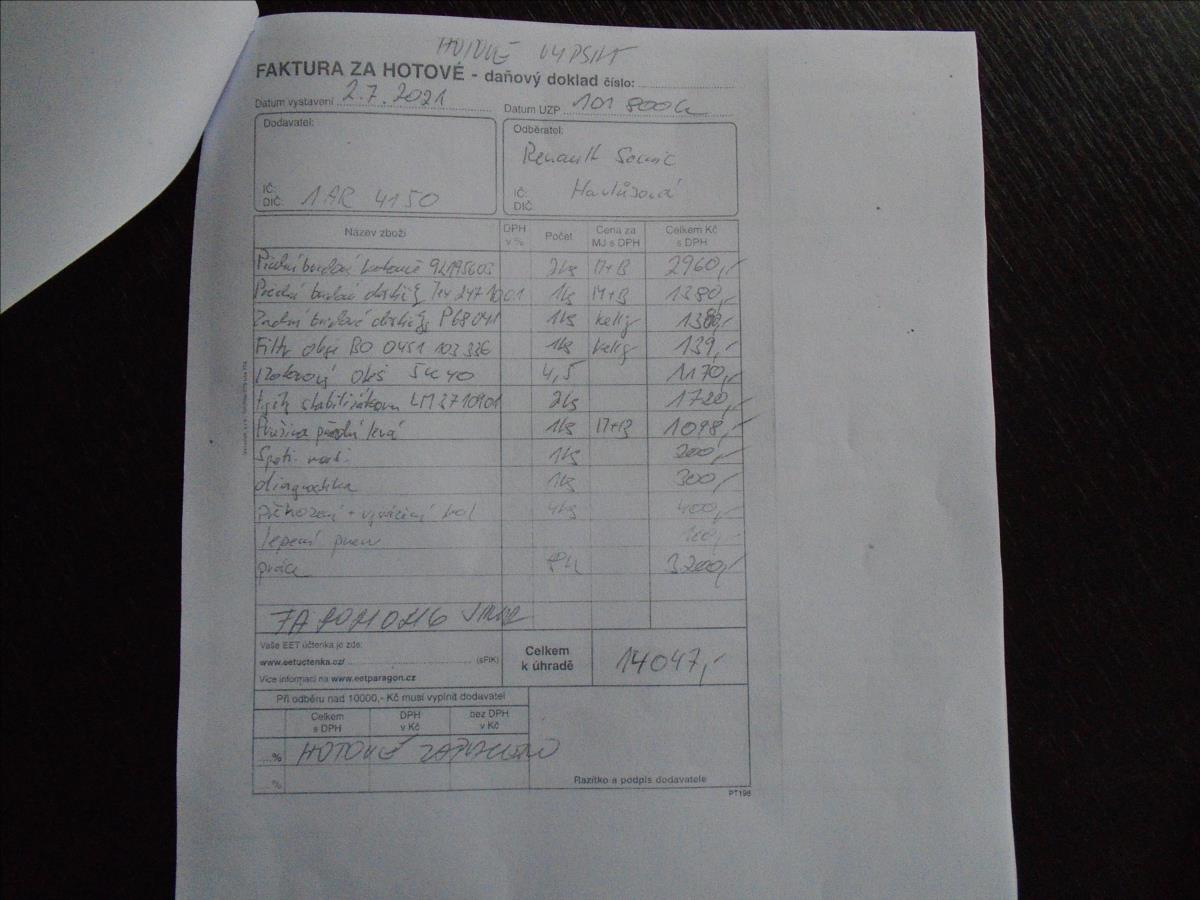 HOTOVĚ VYPSAT
FAKTURA ZA HOTOVÉ - daňový doklad číslo:
Datum vystavení 2.7.2021 Datum UZP 101 800
Dodavatel:
IČ:
DIČ: 1AR 4150
Odběratel:
Renault Scenic
IČ:
DIČ:
Název zboží DPH v % Počet Cena za MJ s DPH Celkem Kč s DPH
Přední brzdové kotouče 2ks M+B 2960,-
Přední brzdové 1ks M+B 1380,-
Zadní brzdové P68041 1ks 1380,-
Filtr oleje BO 0451 103 336 1ks 139,-
Motorový olej 5W40 4,5 1170,-
tyčky stabilizátoru 2ks 1720,-
Pružina přední levá 1ks M+B 1098,-
1ks 200,-
diagnostika 1ks 300,-
přehození + vyvážení kol 4ks 400,-
lepení pneu
práce 3200,-
FA 20210216
Vaše EET účtenka je zde:
www.eetuctenka.cz/ (sFIK)
Více informací na www.eetparagon.cz
Celkem k úhradě 14047,-
Při odběru nad 10000,- Kč musí vyplnit dodavatel
Celkem s DPH DPH v Kč bez DPH v Kč
...% HOTOVĚ ZAPLACENO
...%
Razítko a podpis dodavatele
PT198